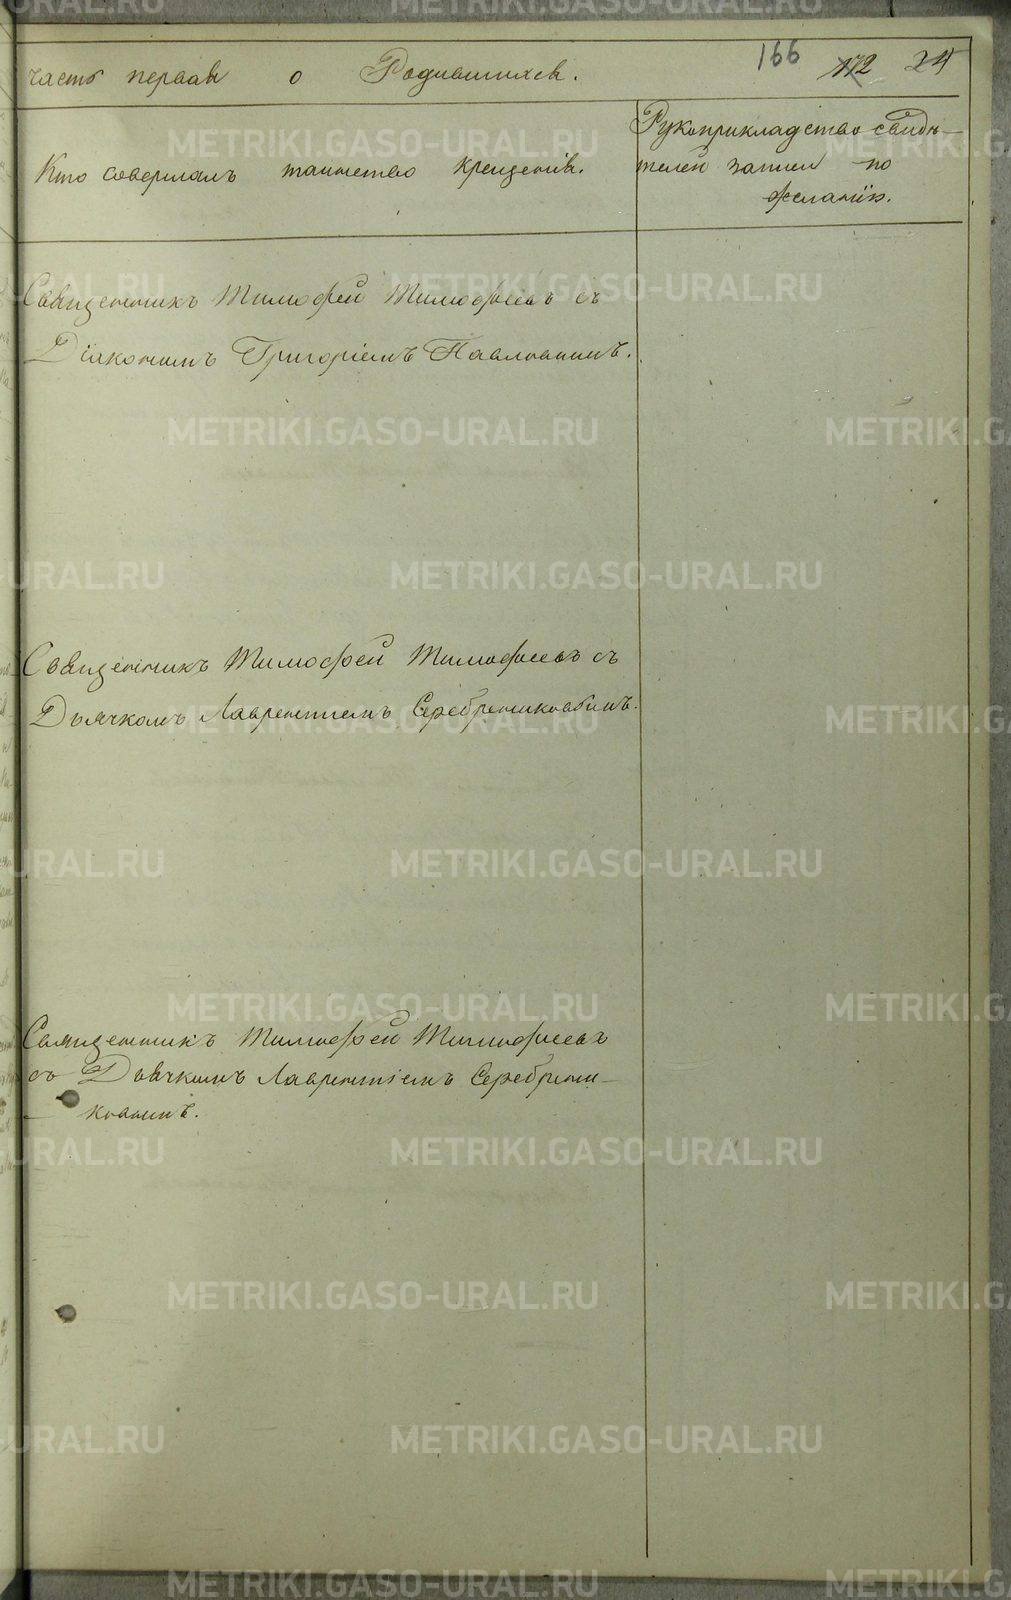 166 172 24
часть первая о Родившихся.
Кто совершалъ таинство крещенія.
Рукоприкладство свидѣ-
телей записи по
желанію.
Священникъ Тимофей Тимофеевъ съ
Діакономъ Григоріемъ Павловымъ.
Священникъ Тимофей Тимофеевъ съ
Дьячкомъ Лаврентіемъ Серебренниковымъ.
Священникъ Тимофей Тимофеевъ
съ Дьячкомъ Лаврентіемъ Серебрени-
ковымъ.
METRIKI.GASO-URAL.RU